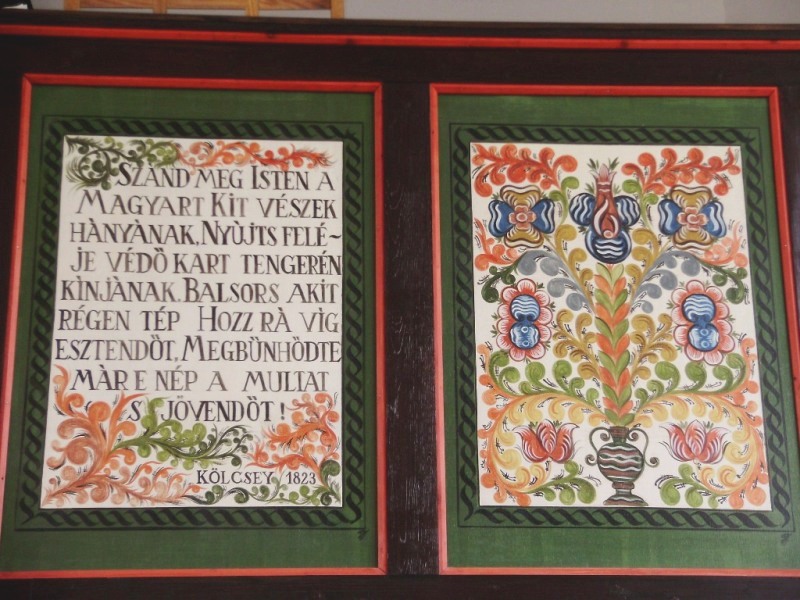 SZÁND MEG ISTEN A
MAGYART KIT VÉSZEK
HÀNYÀNAK, NYÙJTS FELÉ-
JE VÉDÕ KART TENGERÉN
KÌNJÀNAK. BALSORS AKIT
RÉGEN TÉP HOZZ RÀ VÌG
ESZTENDÕT, MEGBÜNHÖDTE
MÀR E NÉP A MULTAT
S JÖVENDÕT!
KÖLCSEY 1823